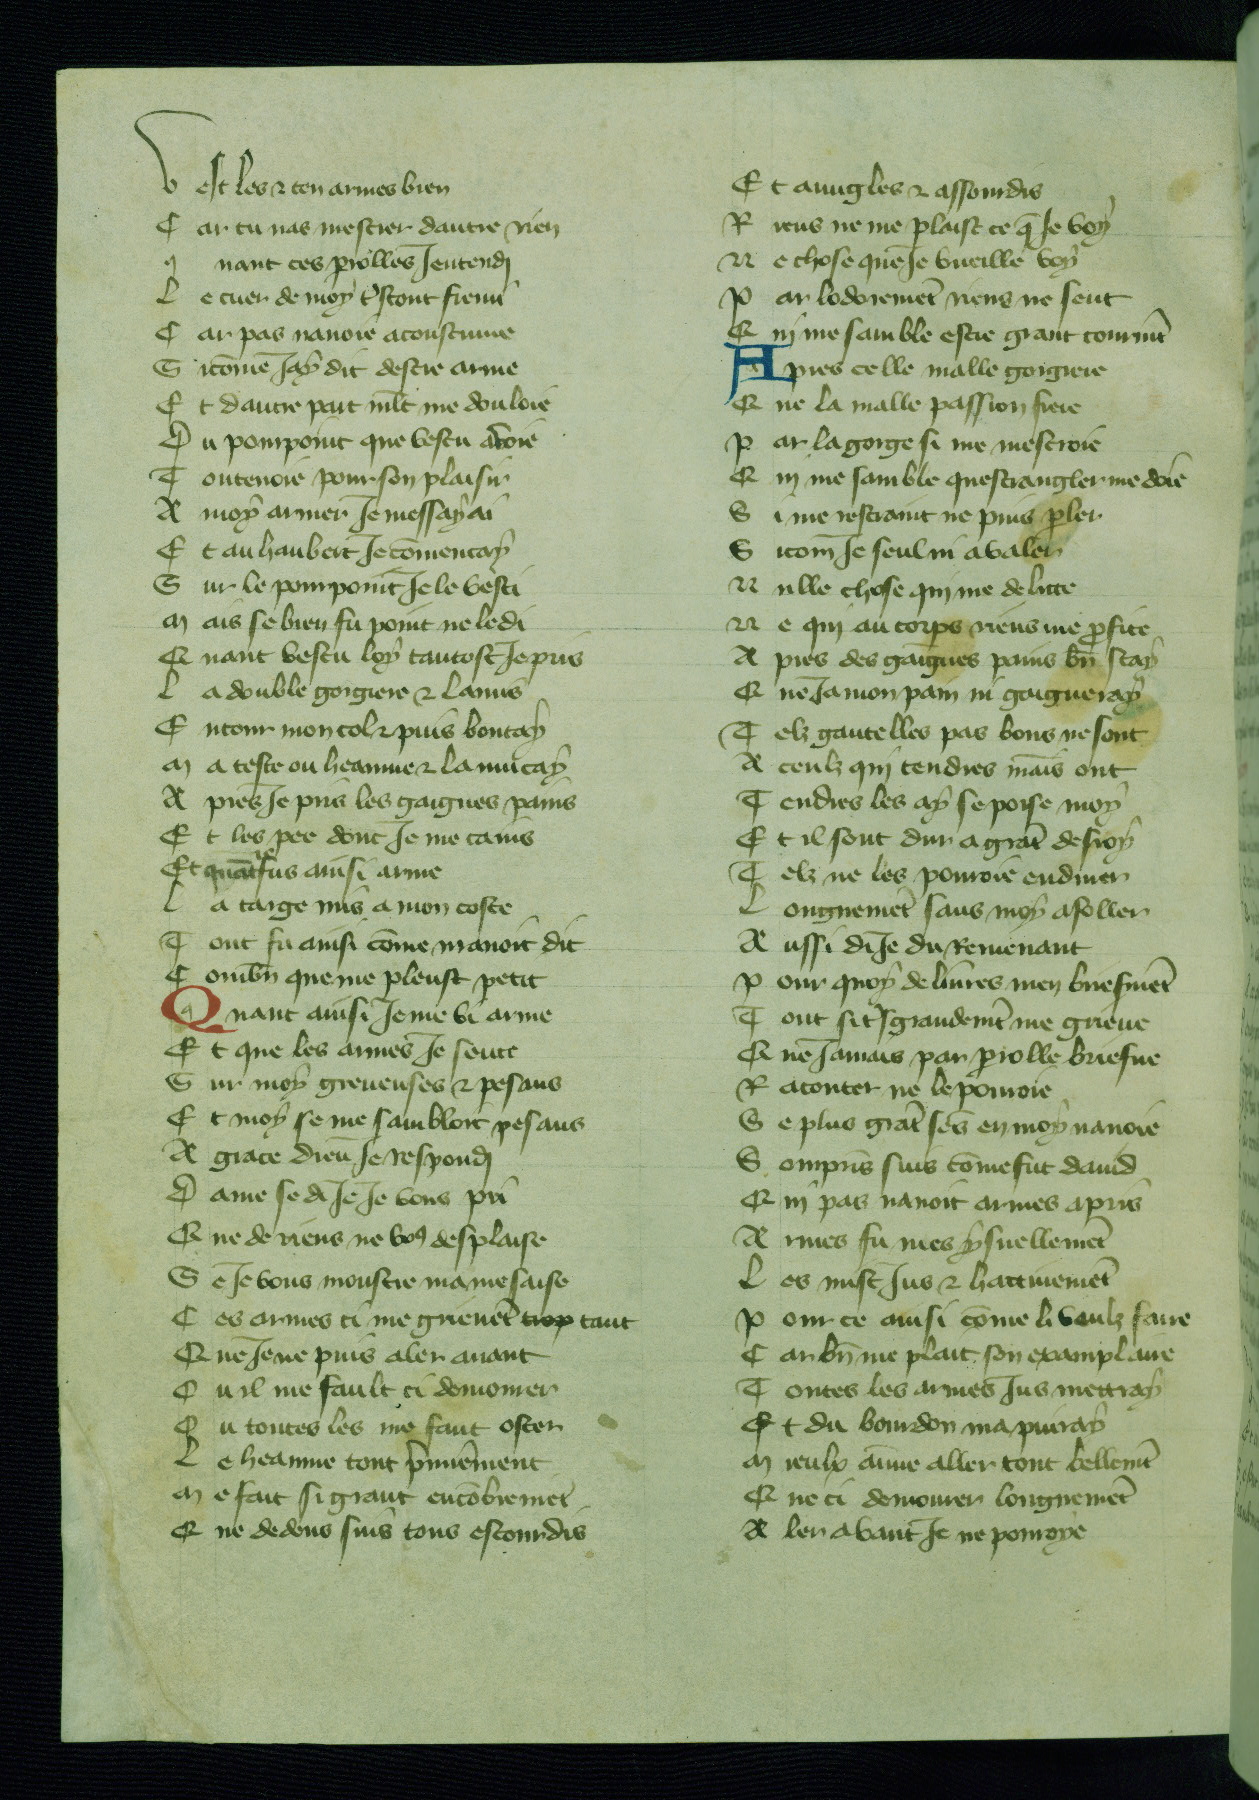 Vest les & ten armes bien
Car tu nas mestier dautre rien
Quant ces parolles Jentendi
Le cuer de moy trestout fremi
Car pas nauoie acoustume
Sicōme Jay dit destre arme
Et dautre part mlt me douloie
Du pompoint que vestu auoie
Toutenoie pour son plaisir
A moy armer Je messayai
Et au haubert Je cōmencay
Sur le pompoint Je le vesti
Mais se bien fu point ne le di
Quant vestu loy tantost Je pris
La double gorgiere & la mis
Entour mon col & puis boutay
Ma teste ou heaume & la mucay
Apres Je pris les gaignes pains
Et lespee dont Je me cains
Et quāt Je fus ainsi arme
La targe mis a mon coste
Tout fu ainsi cōme mauoit dit
Combñ que me pleust petit
Quant ainsi Je me vi arme
Et que les armes Je sente
Sur moy greueuses & pesans
Et moy se me sambloit pesans
A grace dieu Je respondi
Dame se di Je Je vous pri
Que de riens ne vo9 desplaise
Se Je vous moustre ma mesaise
Ces armes ci me grieuēt trop tant
Que Je ne puis aler auant
Ou il me fault ci demourer
Ou toutes les me faut oster
Le heaume tout p̄mierement
Me fait si grant encōbremēt
Que dedens suis tous estourdis
Et auugles & assourdis
Riens ne me plaist ce q̄ Je voy
Ne chose que Je vueille voy
Par lodoremēt riens ne sent
Qui me samble estre grant tourmēt
Apres celle malle gorgiere
Que la malle passion fiere
Par la gorge si me mestroie
Qui me samble questrangler me doie
Si me restraint ne puis p̱ler
Sicom Je seul ni aualer
Nulle chose qui me delitte
Ne qui au corps riens me p̱fite
Apres des gaignes pains bñ scay
Que Ja mon pain ni gaigneray
Telz gantelles pas bons ne sont
A ceulz qui tendres mais ont
Tendres les ay se poise moy
Et il sont dur a grāt desroy
Telz ne les pouroie endurer
Longuemēt sans moy afoller
Aussi di Je du Remenant
Pour quoy deliures men briefmēt
Tout si tsgrandemēt me grieue
Que Jamais par parolle briefue
Raconter ne le pouroie
Se plus grāt sēs en moy nauoie
Sompris suis cōme fut dauid
Qui pas nauoit armes apris
Armes fu mes ysnellemēt
Les mist Jus & hattiuemēt
Pour ce ainsi cōme li vaulz faire
Car bñ me plait son examplaire
Toutes les armes Jus mettray
Et du bourdon ma puiray
Mieulx aime aller tout bellemēt
Que ci demourer longuemēt
Aler auant Je ne pouroye